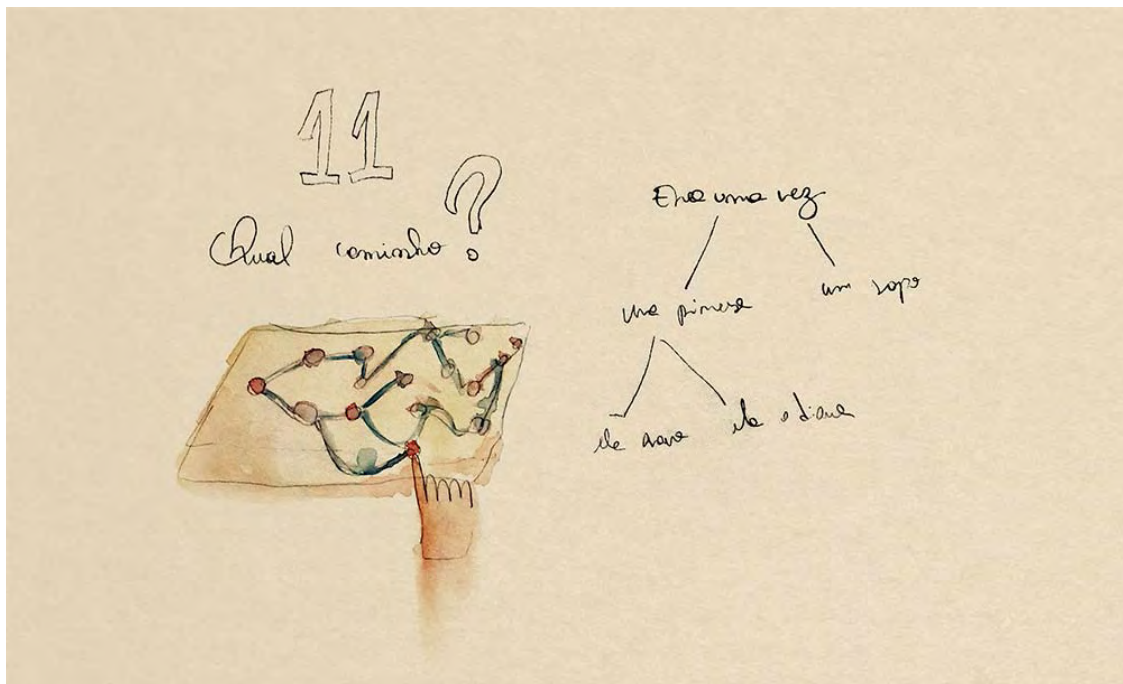 11
Qual caminho?
Era uma vez
uma princesa
um sapo
ela
ela odiava